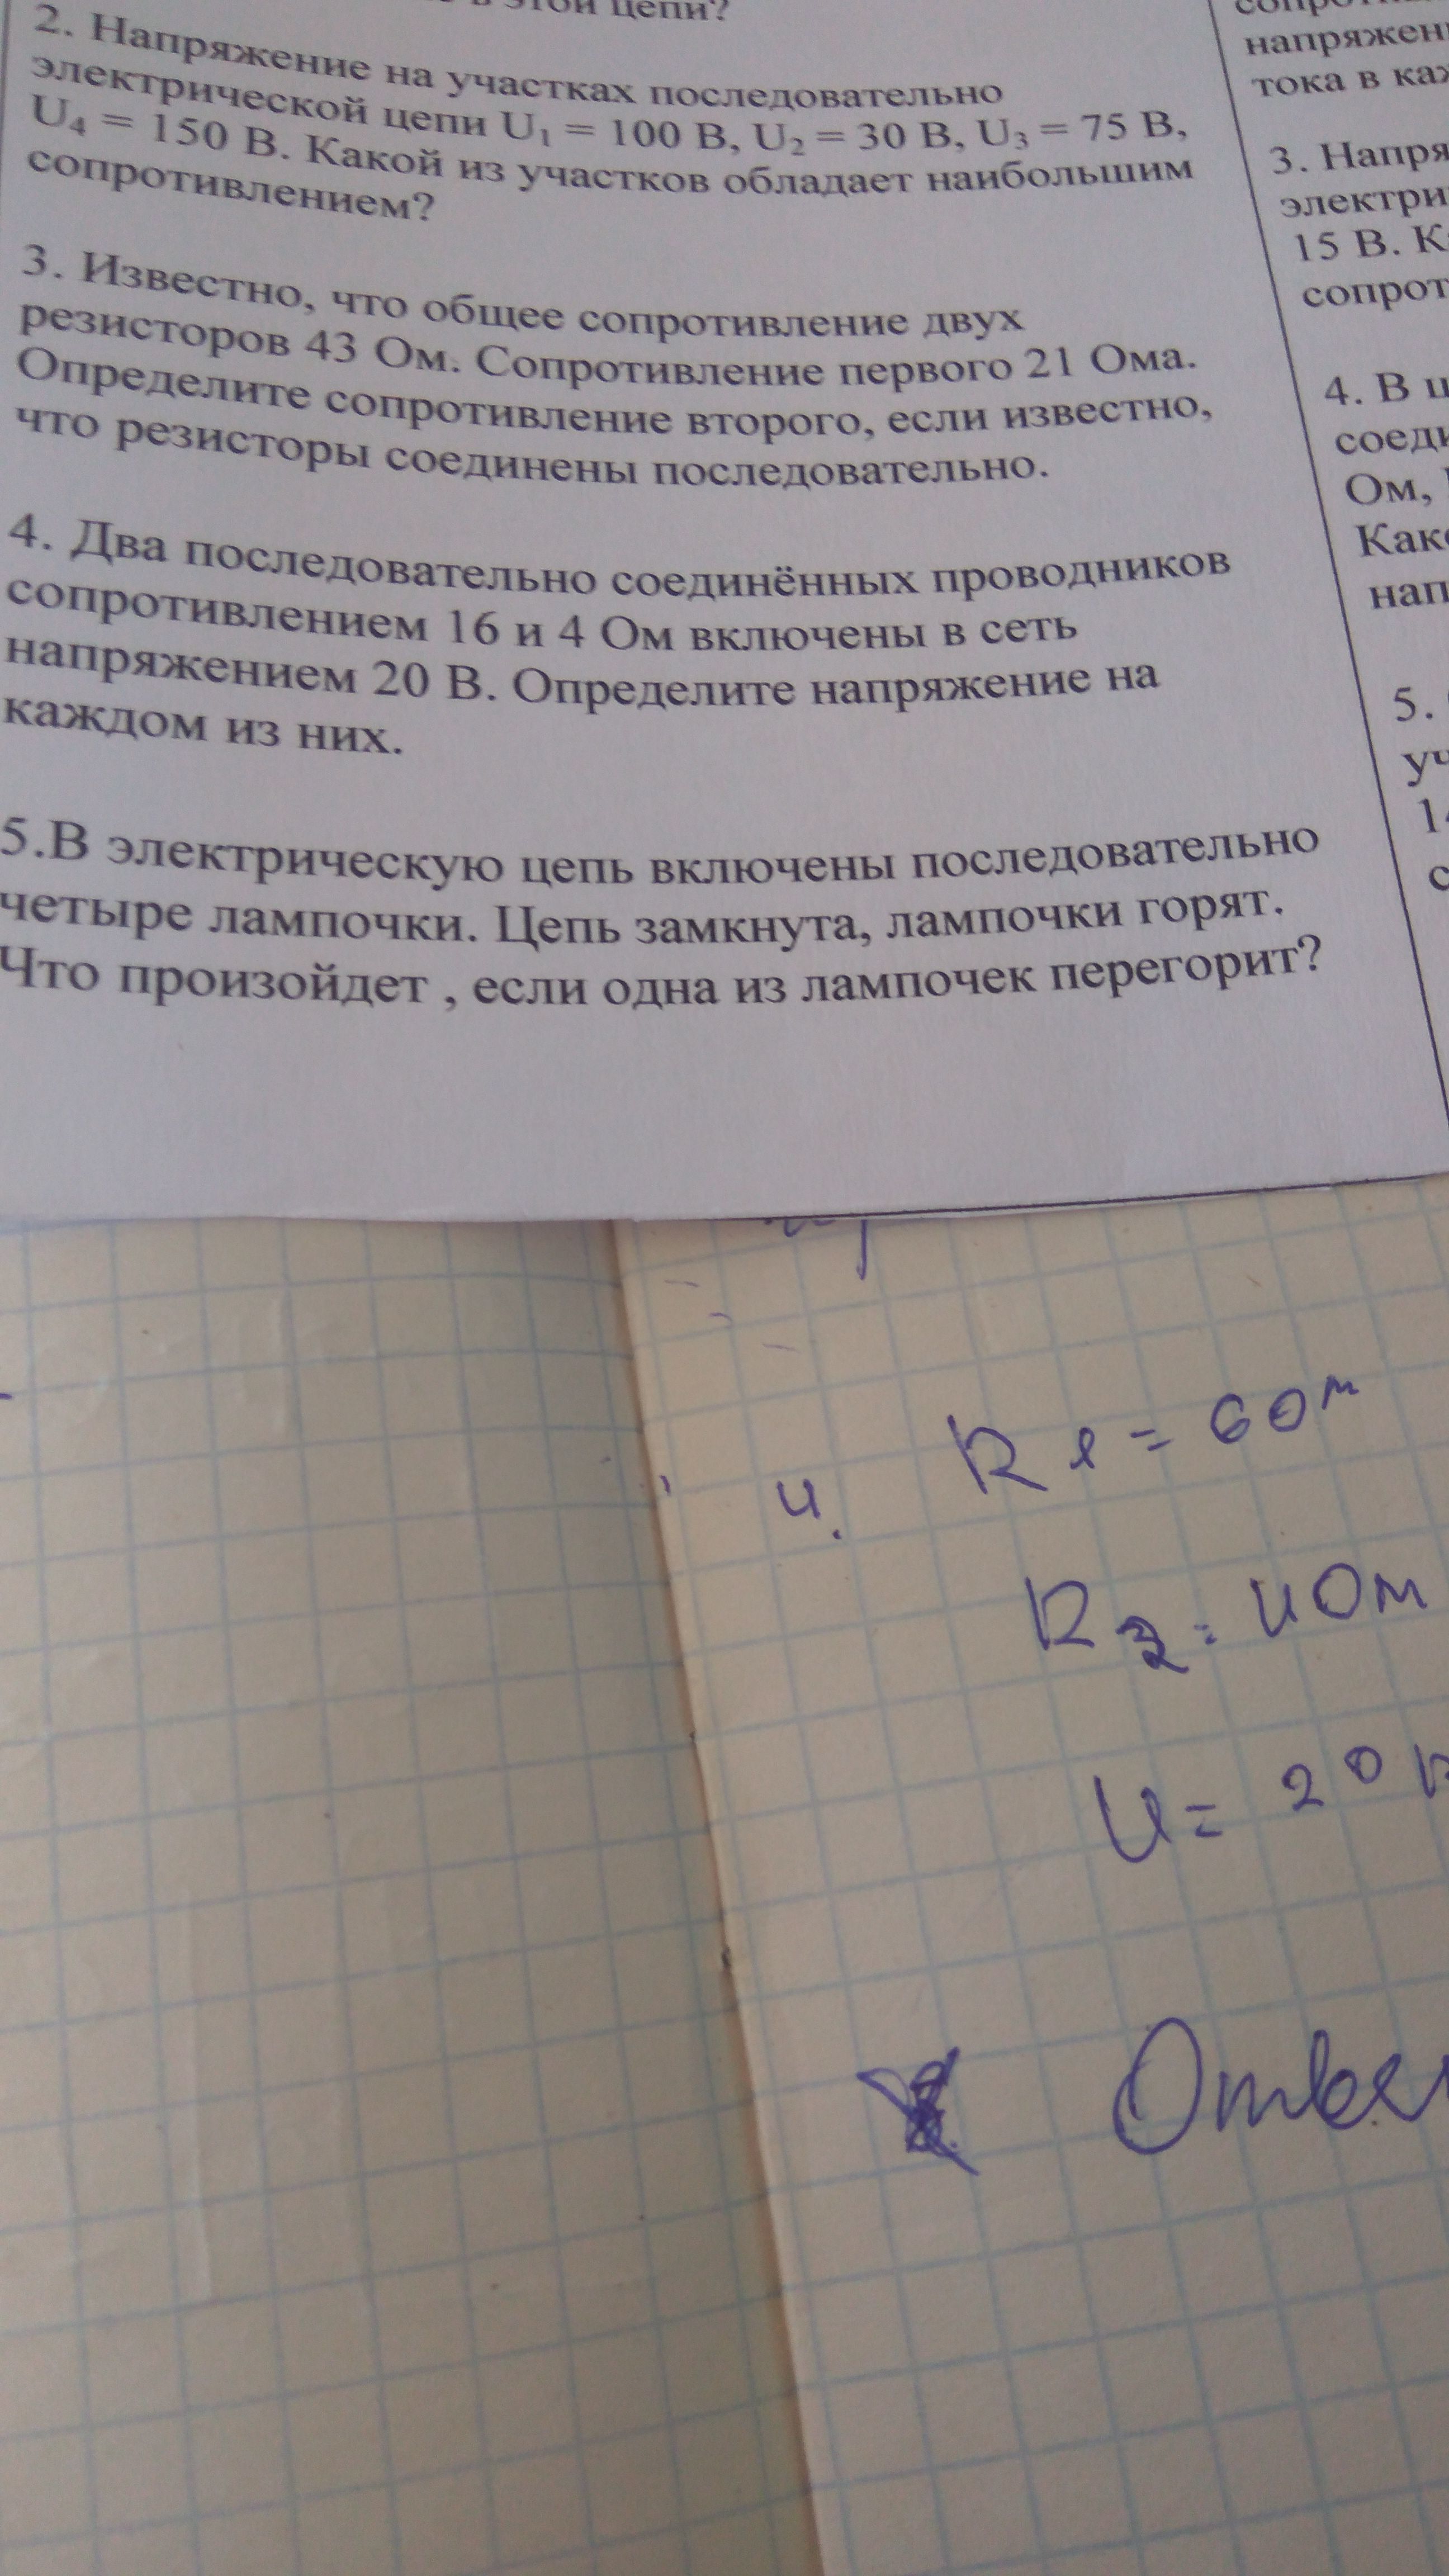 этой цепи?
2. Напряжение на участках последовательно
электрической цепи U₁ = 100 В, U₂ = 30 В, U₃ = 75 В,
U₄ = 150 В. Какой из участков обладает наибольшим
сопротивлением?
3. Известно, что общее сопротивление двух
резисторов 43 Ом. Сопротивление первого 21 Ома.
Определите сопротивление второго, если известно,
что резисторы соединены последовательно.
4. Два последовательно соединённых проводников
сопротивлением 16 и 4 Ом включены в сеть
напряжением 20 В. Определите напряжение на
каждом из них.
5.В электрическую цепь включены последовательно
четыре лампочки. Цепь замкнута, лампочки горят.
Что произойдет , если одна из лампочек перегорит?
напряжен
тока в каж
3. Напря
электри
15 В. К
сопрот
4. В ц
соеди
Ом,
Како
нап
5.
уч
14
с
4. R 1 = 6 Ом
R 2 = 4 Ом
U = 20 В
Отве